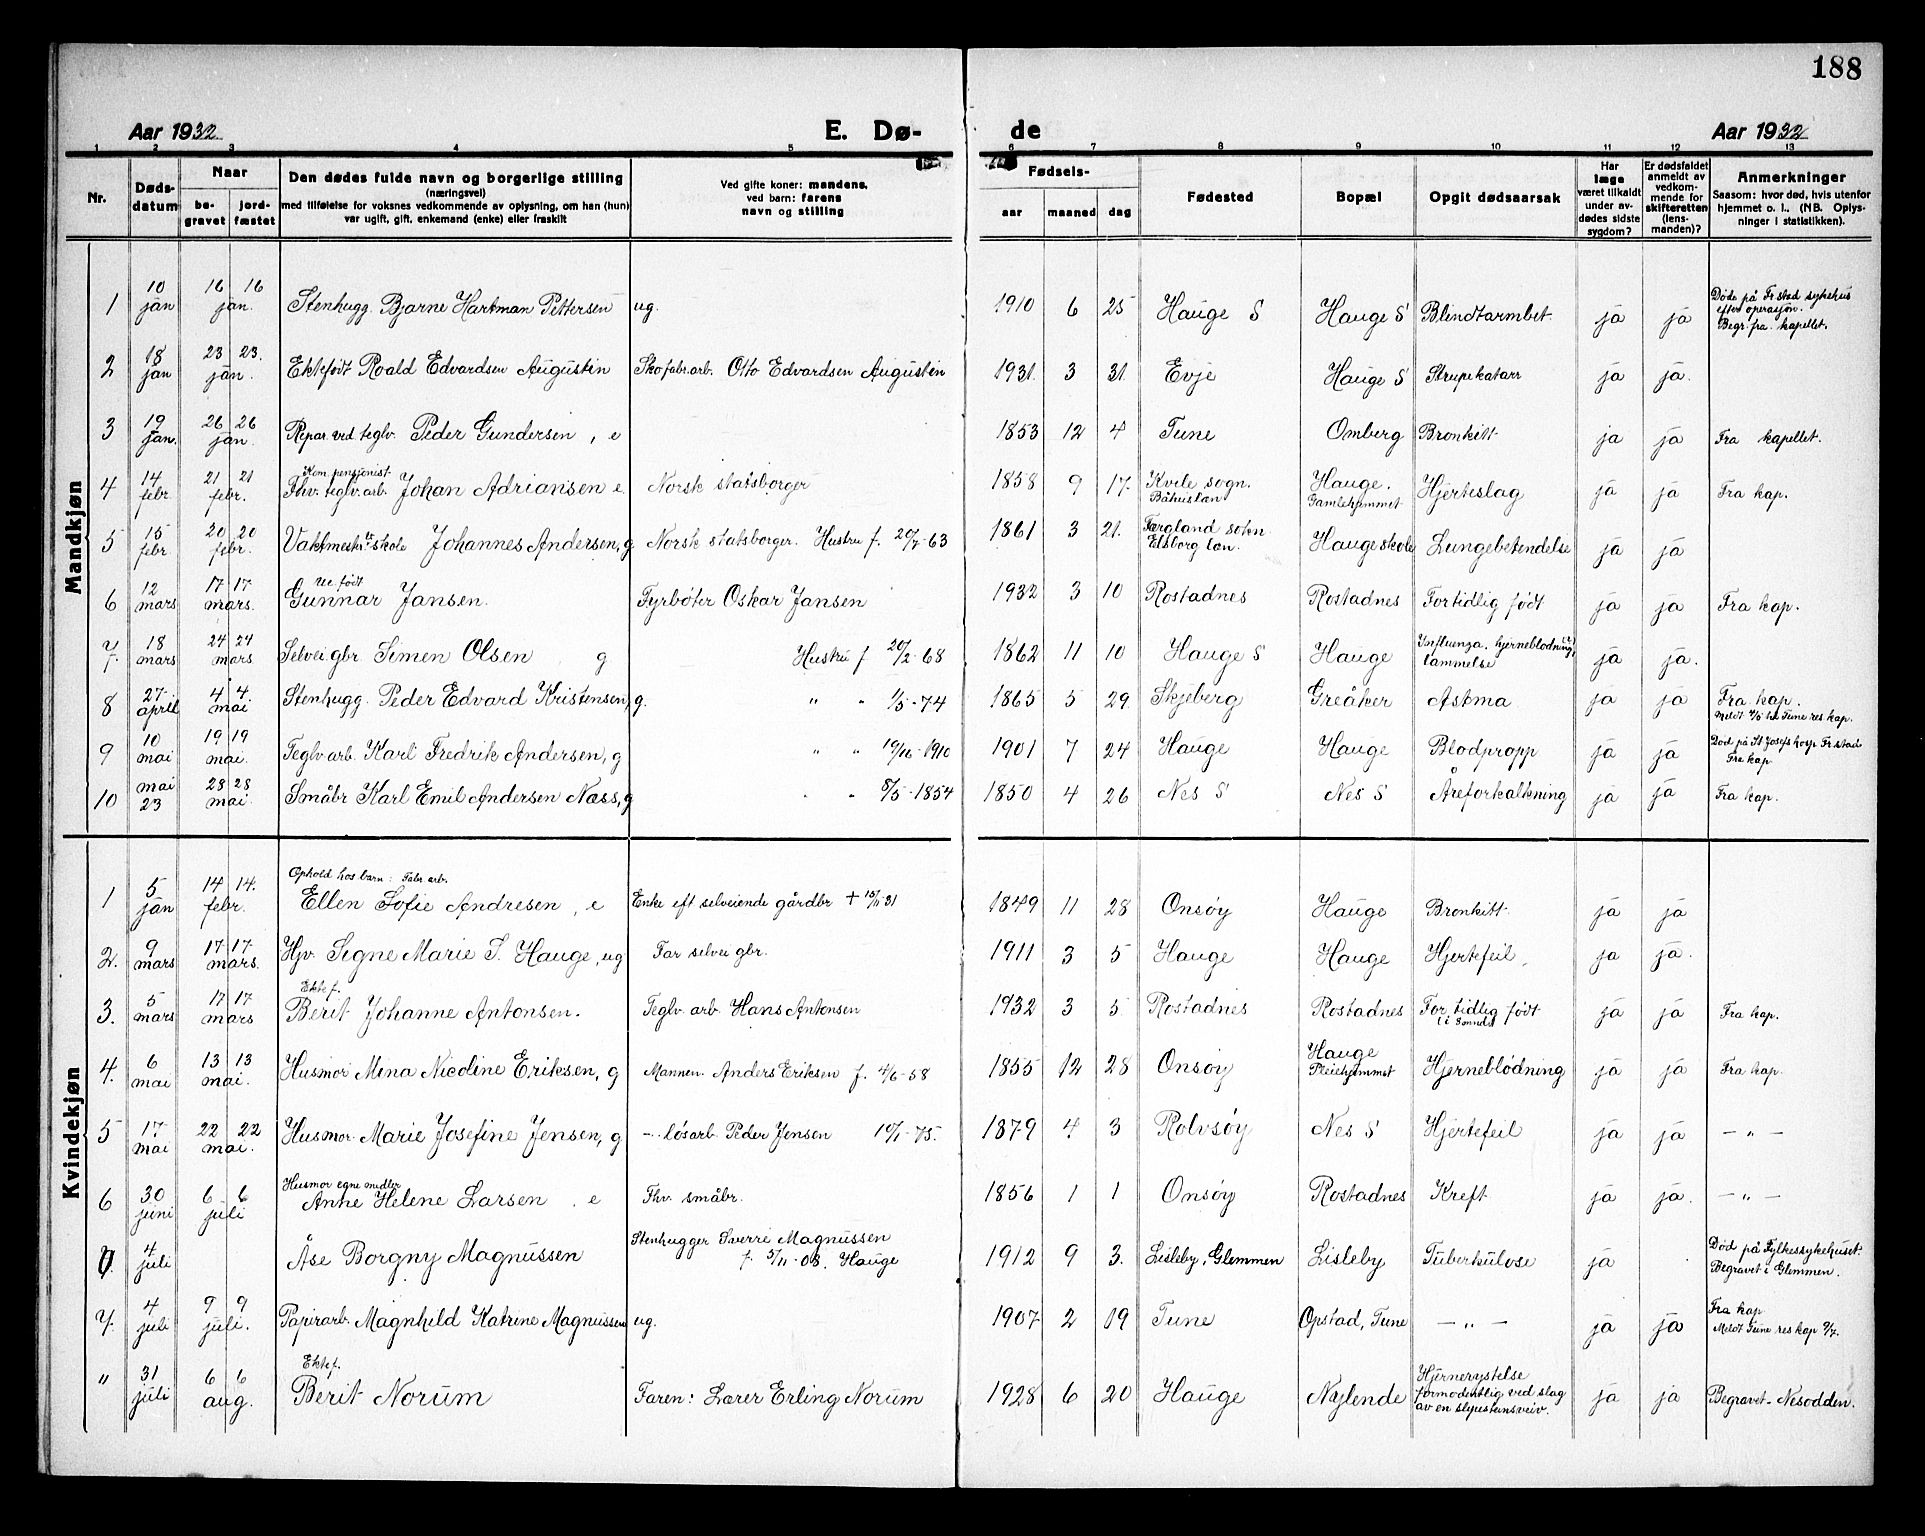 188
Aar 1932 E. Dø- de Aar 1932
1 2 3 4 5 6 7 8 9 10 11 12 13
Nr. Døds-datum Naar be-gravet jord-fæstet Den dødes fulde navn og borgerlige stilling (næringsvei) med tilføielse for voksnes vedkommende av oplysning, om han (hun) var ugift, gift, enkemand (enke) eller fraskilt Ved gifte koner: mandens, ved barn: farens navn og stilling Fødsels- aar maaned dag Fødested Bopæl Opgit dødsaarsak Har læge været tilkaldt under av-dødes sidste sygdom? Er dødsfaldet anmeldt av vedkom-mende for skifteretten (lens-manden)? Anmerkninger Saasom: hvor død, hvis utenfor hjemmet o. l., (NB. Oplys-ninger i statistikken).
Mandkjøn
1 10 jan 16 16 jan. Stenhugg. Bjarne Hartman Pettersen ug. 1910 6 25 Hauge S Hauge S Blindtarmbet. ja ja Døde på Fr.stad sykehus efter operasjon. Begr. fra kapellet.
2 18 jan 23 23. jan. Ektefødt Roald Edvardsen Augustin Skofabr.arb. Otto Edvardsen Augustin 1931. 3 31. Evje Hauge S Strupekatarr ja ja.
3 19 jan. 26 26 jan. Repar. ved teglv. Peder Gundersen, e 1853 12 4 Tune Omberg Bronkitt. ja ja Fra kapellet.
4 14 febr. 21 21 febr. Kom. pensjonist Fhv. teglv.arb. Johan Adriansen e. Norsk statsborger 1858 9 17. Kvile sogn. Båhuslan Hauge. Gamlehjemmet Hjerteslag ja ja Fra kap.
5 15 febr. 20 20 febr. Vaktmester skole Johannes Andersen, g Norsk statsborger. Hustru f. 20/7-63 1861 3 21. Færgland sokn Elsborg lan. Hauge skole Lungebetendelse ja ja
6 12 mars 17 17 mars. Ue født Gunnar Jansen. Fyrbøter Oskar Jansen 1932 3 10 Rostadnes Rostadnes For tidlig født ja ja Fra kap.
7. 18 mars 24 24 mars Selvei gbr. Simen Olsen g Hustru f 20/2-68 1862 11 10 Hauge S Hauge Ynfluenza, hjerneblodning, lammelse ja ja.
8 27 april 4 4. mai Stenhugg. Peder Edvard Kristensen, g. " " 1/5-74 1865 5 29 Skjeberg Greåker Astma ja ja Fra kap. Meldt 4/5 til Tune res kap.
9 10 mai 19 19 mai. Teglv arb. Karl Fredrik Andersen, g " " 19/10-1910 1901 7 24 Hauge Hauge Blodpropp ja ja Død på St Josefs hosp Fr.stad Fra kap
10 mai 23 28 28 mai. Småbr Karl Emil Andersen Næss, g " " 8/5-1854 1850 4 26 Nes S Nes S Åreforkalkning ja ja Fra kap.
Kvindekjøn
1 5 jan 14 14. febr. Ophold hos barn: Fabr. arb. Ellen Sofie Andresen, e Enke eft selveiende gårdbr + 15/11 31 1849 11 28 Onsøy Hauge Bronkitt. ja ja
2. 9 mars 17 17 mars. Hjv. Signe Marie S. Hauge, ug Far selvei gbr. 1911 3 5 Hauge Hauge Hjertefeil. ja ja.
3. 5 mars 17 17 mars Ekte f. Berit Johanne Antonsen. Teglv. arb. Hans Antonsen 1932 3 5 Rostadnes Rostadnes For tidlig født ja ja Fra kap.
4. 6 mai 13 13 mai. Husmor Mina Nicoline Eriksen, g Mannen. Anders Eriksen f. 4/6-58 1855 12 28 Onsøy Hauge Pleiehjemmet Hjerneblødning ja ja Fra kap.
5 17 mai 22 22 mai. Husmor. Marie Josefine Jensen, g -"- løsarb. Peder Jensen 10/1-75. 1879 4 3 Rolvsøy Nes S Hjertefeil ja ja - " -
6 30 juni 6 6 juli Husmor egne midler Anne Helene Larsen, e Fhv. småbr. 1856 1 1 Onsøy Rostadnes Kreft ja ja. - " -
0. 4 juli Åse Borgny Magnussen Stenhugger Sverre Magnussen f. 5/11-08. Hauge 1912 9 3. Lisleby, Glemmen Lisleby Tuberkulose ja Død på Fylkessykehuset. Begravet i Glemmen.
7. 4 juli 9 9 juli. Papirarb. Magnhild Katrine Magnussen ug. 1907 2 19 Tune Opstad, Tune - " - ja ja Fra kap. Meldt Tune res kap 9/7.
" 31 juli 6 6 aug. Ekte f. Berit Norum Faren: Lærer Erling Norum 1928 6 20 Hauge Nylende Hjernerystelse formodentlig ved slag av en slipestensveiv. ja ja Begravet - Nesodden.